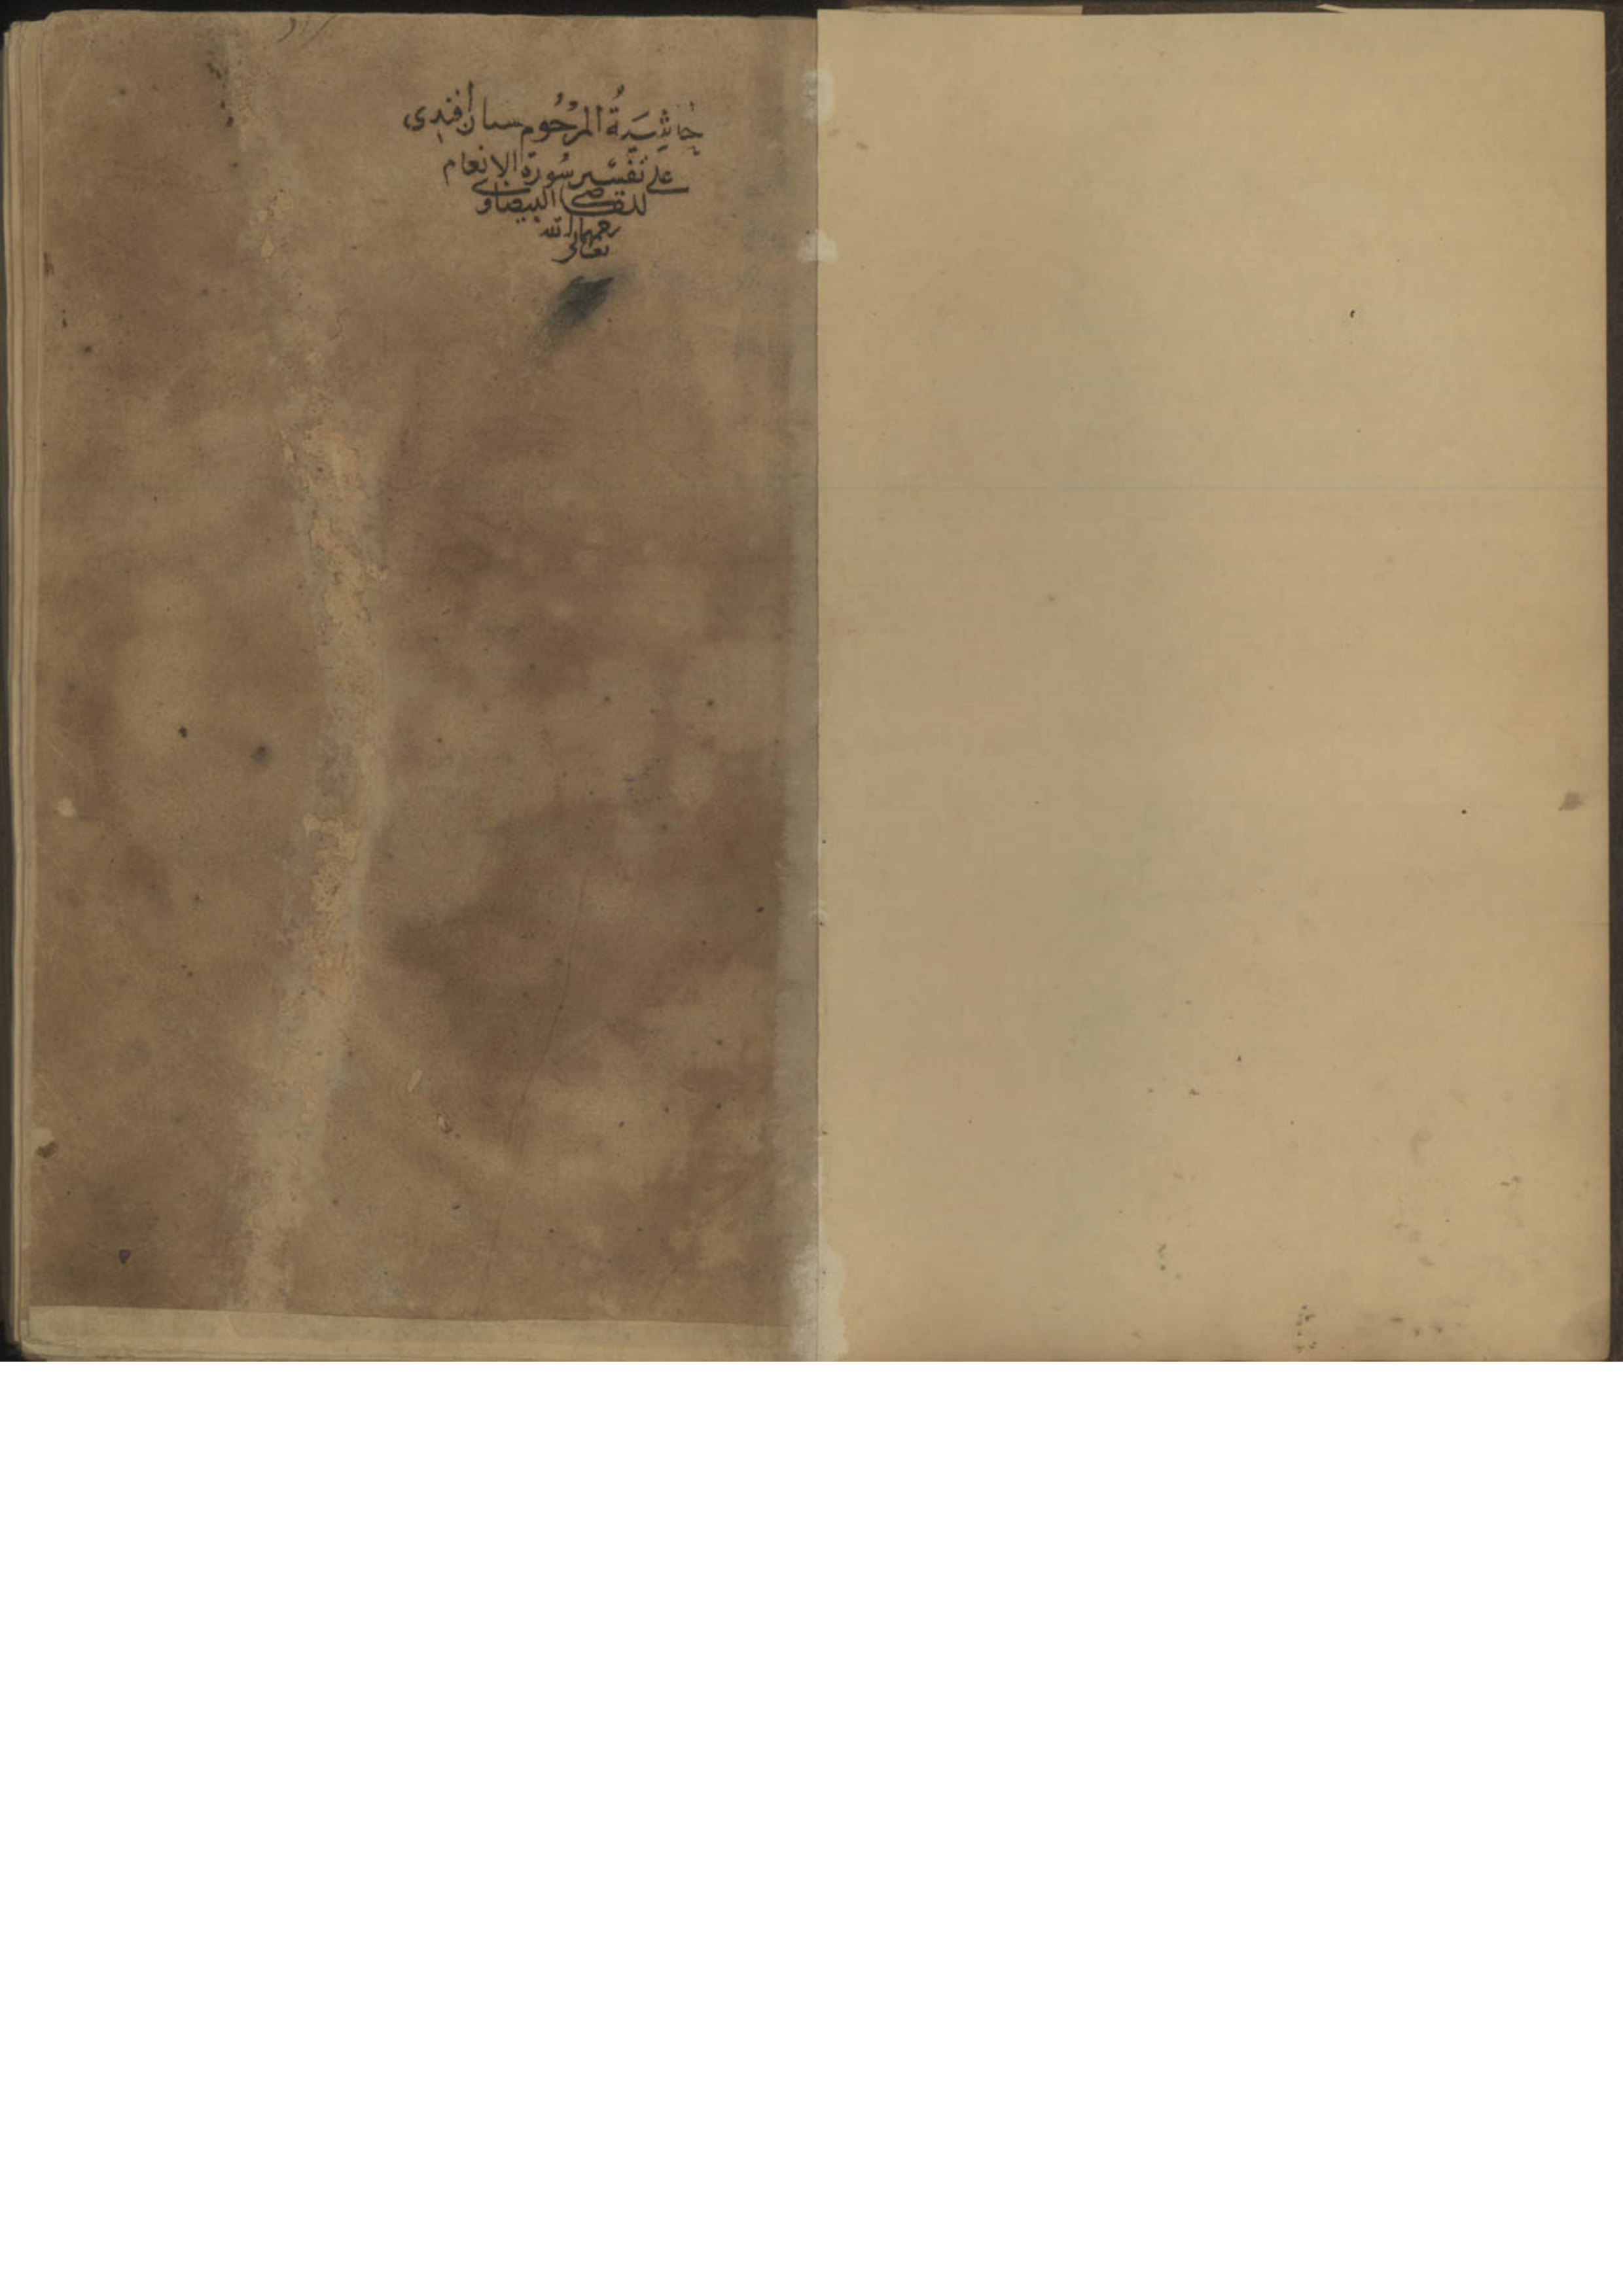 حَاشِيَةُ المَرْحُوم سنان أفندى
على تفسير سُورة الانعام
للقاضى البيضاوى
رحمهما الله
تعالى